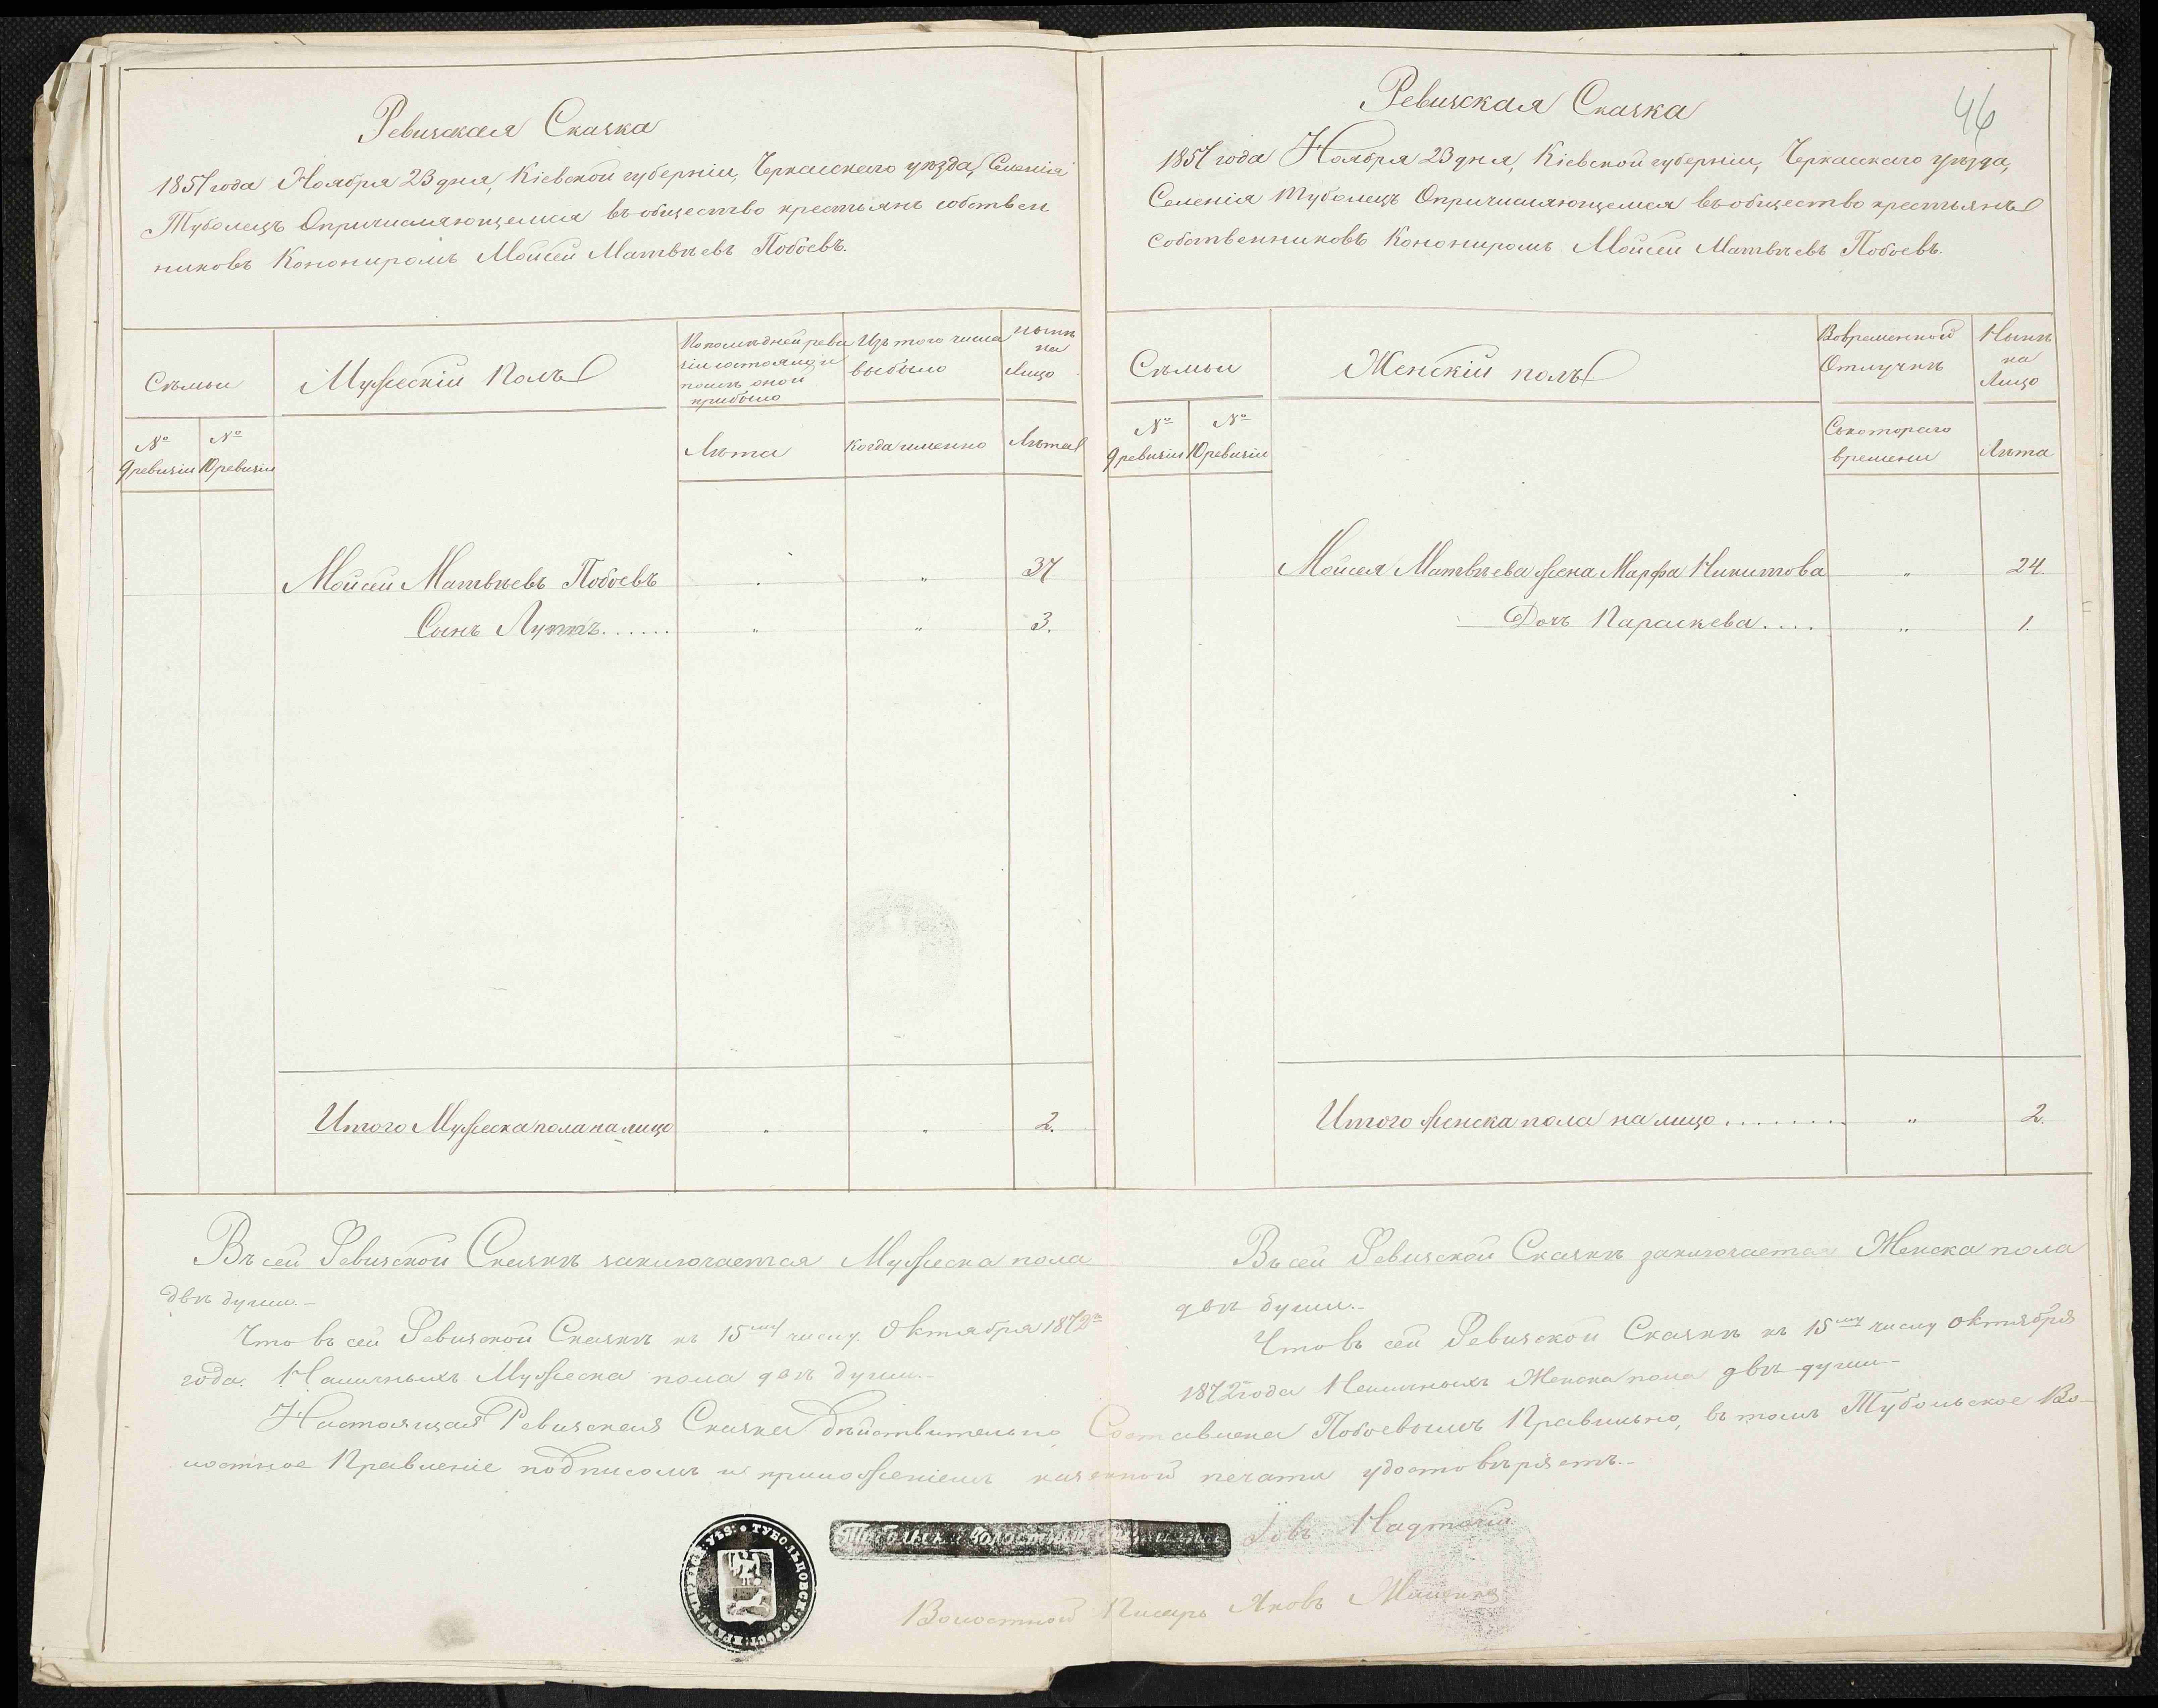 Ревизская Сказка
1857 года Ноября 23 дня, Кіевской губерніи, Черкасскаго уѣзда, Селенія
Туболецъ Опричисляющемся въ общество крестьянъ собствен
никовъ Конониромъ Мойсей Матвѣевъ Побоевъ.
Семьи
Мужескій Полъ
По послѣдней реви
зіи состояло и
послѣ оной
прибыло
Изъ того числа
выбыло
Нынѣ
на
Лицо
№
9 ревизіи
№
10 ревизіи
Лѣта
Когда именно
Лѣта
Мойсей Матвѣевъ Побоевъ
37
Сынъ Лука......
3.
Итого Мужеска пола на лицо
2.
Въ сей Ревизской Сказкѣ заключается Мужеска пола
двѣ души.-
Что въ сей Ревизской Сказкѣ къ 15му числу Октября 1872го
года Наличныхъ Мужеска пола двѣ души.-
46
Ревизская Сказка
1857 года Ноября 23 дня, Кіевской губерніи, Черкасскаго уѣзда,
Селенія Туболецъ Опричисляющемся въ общество крестьянъ
собственниковъ Конониромъ Мойсей Матвѣевъ Побоевъ.
Семьи
Женскій полъ
Во временной
Отлучкѣ
Нынѣ
на
Лицо
№
9 ревизіи
№
10 ревизіи
Съ котораго
времени
Лѣта
Мойсея Матвѣева жена Марфа Никитова
24.
Дочь Параскева....
1.
Итого Женска пола на лицо........
2.
Въ сей Ревизской Сказкѣ заключается Женска пола
двѣ души.-
Что въ сей Ревизской Сказкѣ къ 15му числу Октября
1872 года Наличныхъ Женска пола двѣ души-
Настоящая Ревизская Сказка дѣйствительно Составлена Побоевымъ Правильно, въ томъ Тубольское Во-
лостное Правленіе подписомъ и приложеніемъ казенной печати удостовѣряетъ.-
Іовъ
Волостной Писарь Яковъ